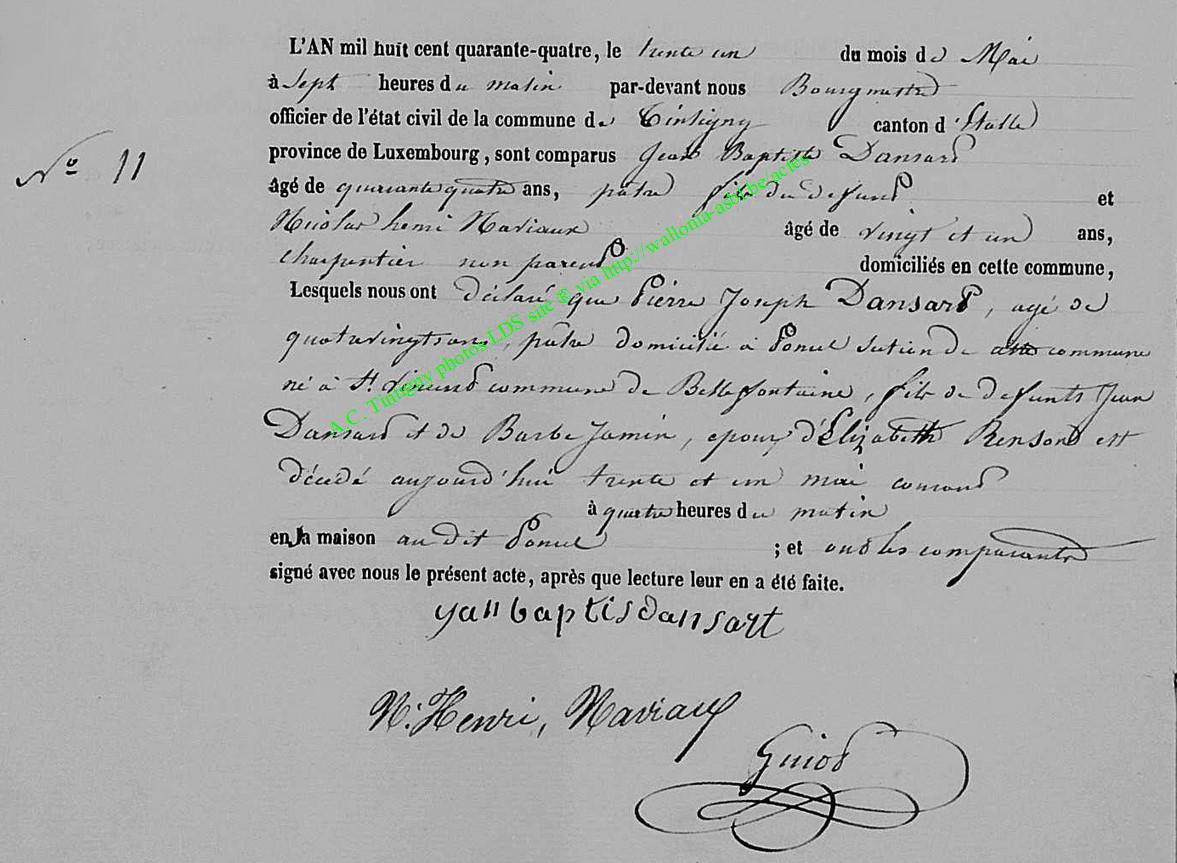 L'AN mil huit cent quarante-quatre, le trente un du mois de Mai
à Sept heures du matin par-devant nous Bourgmestre
officier de l'état civil de la commune de Tintigny canton d'Etalle
province de Luxembourg, sont comparus Jean Baptiste Dansard
N° 11
âgé de quarante quatre ans, pâtre fils du defunt et
Nicolas henri Naviaux âgé de vingt et un ans,
charpentier non parent domiciliés en cette commune,
Lesquels nous ont déclaré que Pierre Joseph Dansard, agé de
quatrevingts ans, pâtre domicilié à Poncel section de commune
né à St. Vincent commune de Bellefontaine, fils de defunts Jean
Dansard et de Barbe Jamin, epoux d'Elizabeth Renson est
décédé aujourd'hui trente et un mai courant
à quatre heures du matin
en la maison au dit Poncel ; et ont les comparants
signé avec nous le présent acte, après que lecture leur en a été faite.
yan baptis dansart
N. Henri, Naviaux
Guiot
A.C. Tintigny photos LDS sue © via http://wallonia-asbl.be/actes